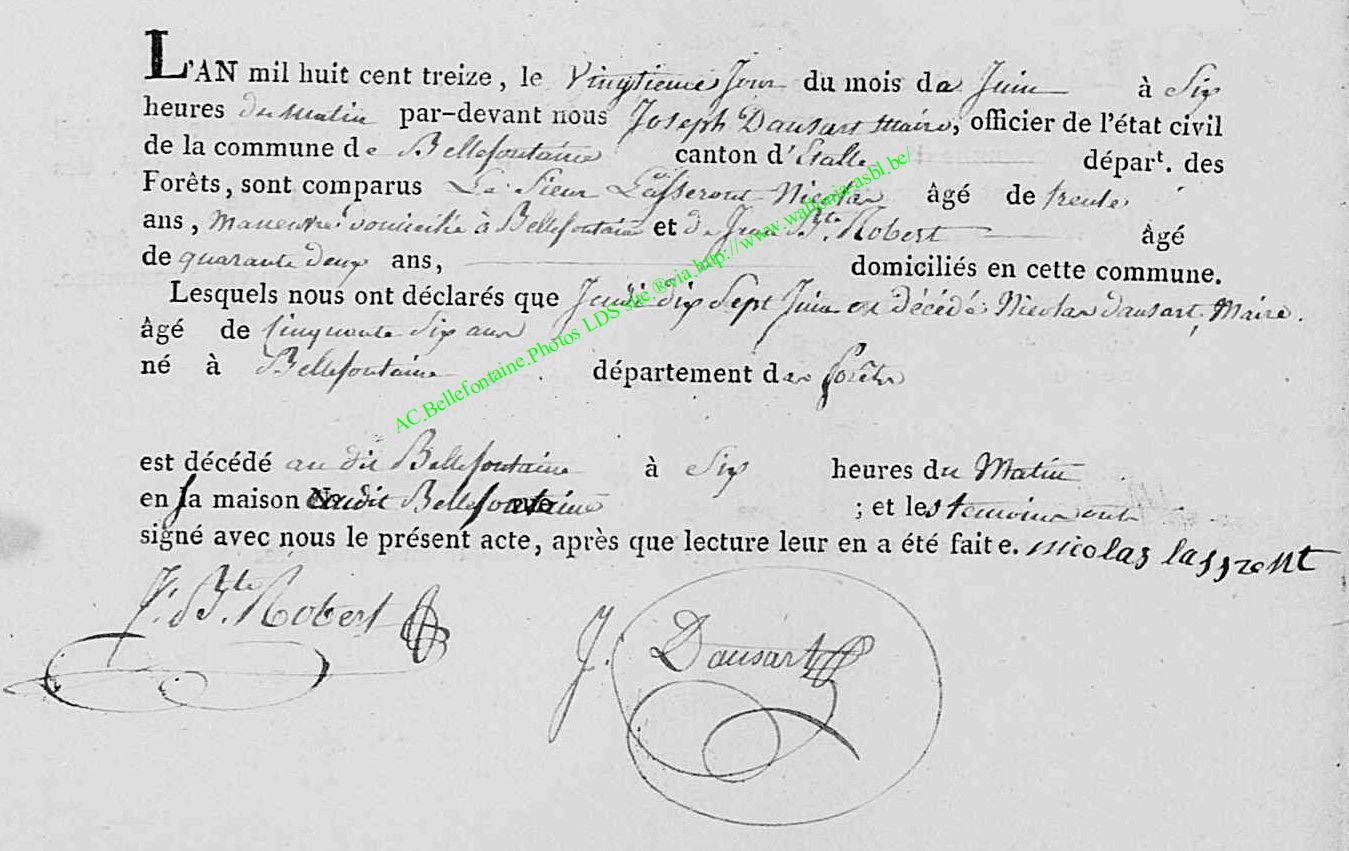 L'AN mil huit cent treize, le Vingtieme Jour du mois de Juin à Six
heures du Matin par-devant nous Joseph Dausart Maire, officier de l'état civil
de la commune de Bellefontaine canton d'Etalle départ. des
Forêts, sont comparus Le Sieur Lasseront Nicolas âgé de trente
ans, Maneuvre domicilié à Bellefontaine et de Jean Bte Robert âgé
de quarante deux ans, domiciliés en cette commune.
Lesquels nous ont déclarés que Jeudi dix Sept Juin est décédé Nicolas Dausart, Maire.
âgé de Cinquante Six ans
né à Bellefontaine département des forêts
est décédé au dit Bellefontaine à Six heures du Matin
en sa maison audit Bellefontaine ; et les temoins ont
signé avec nous le présent acte, après que lecture leur en a été faite. nicolas
J. Bte Robert
J. Dausart
AC.Bellefontaine.Photos LDS site.®via.http://www.wallonia-asbl.be/